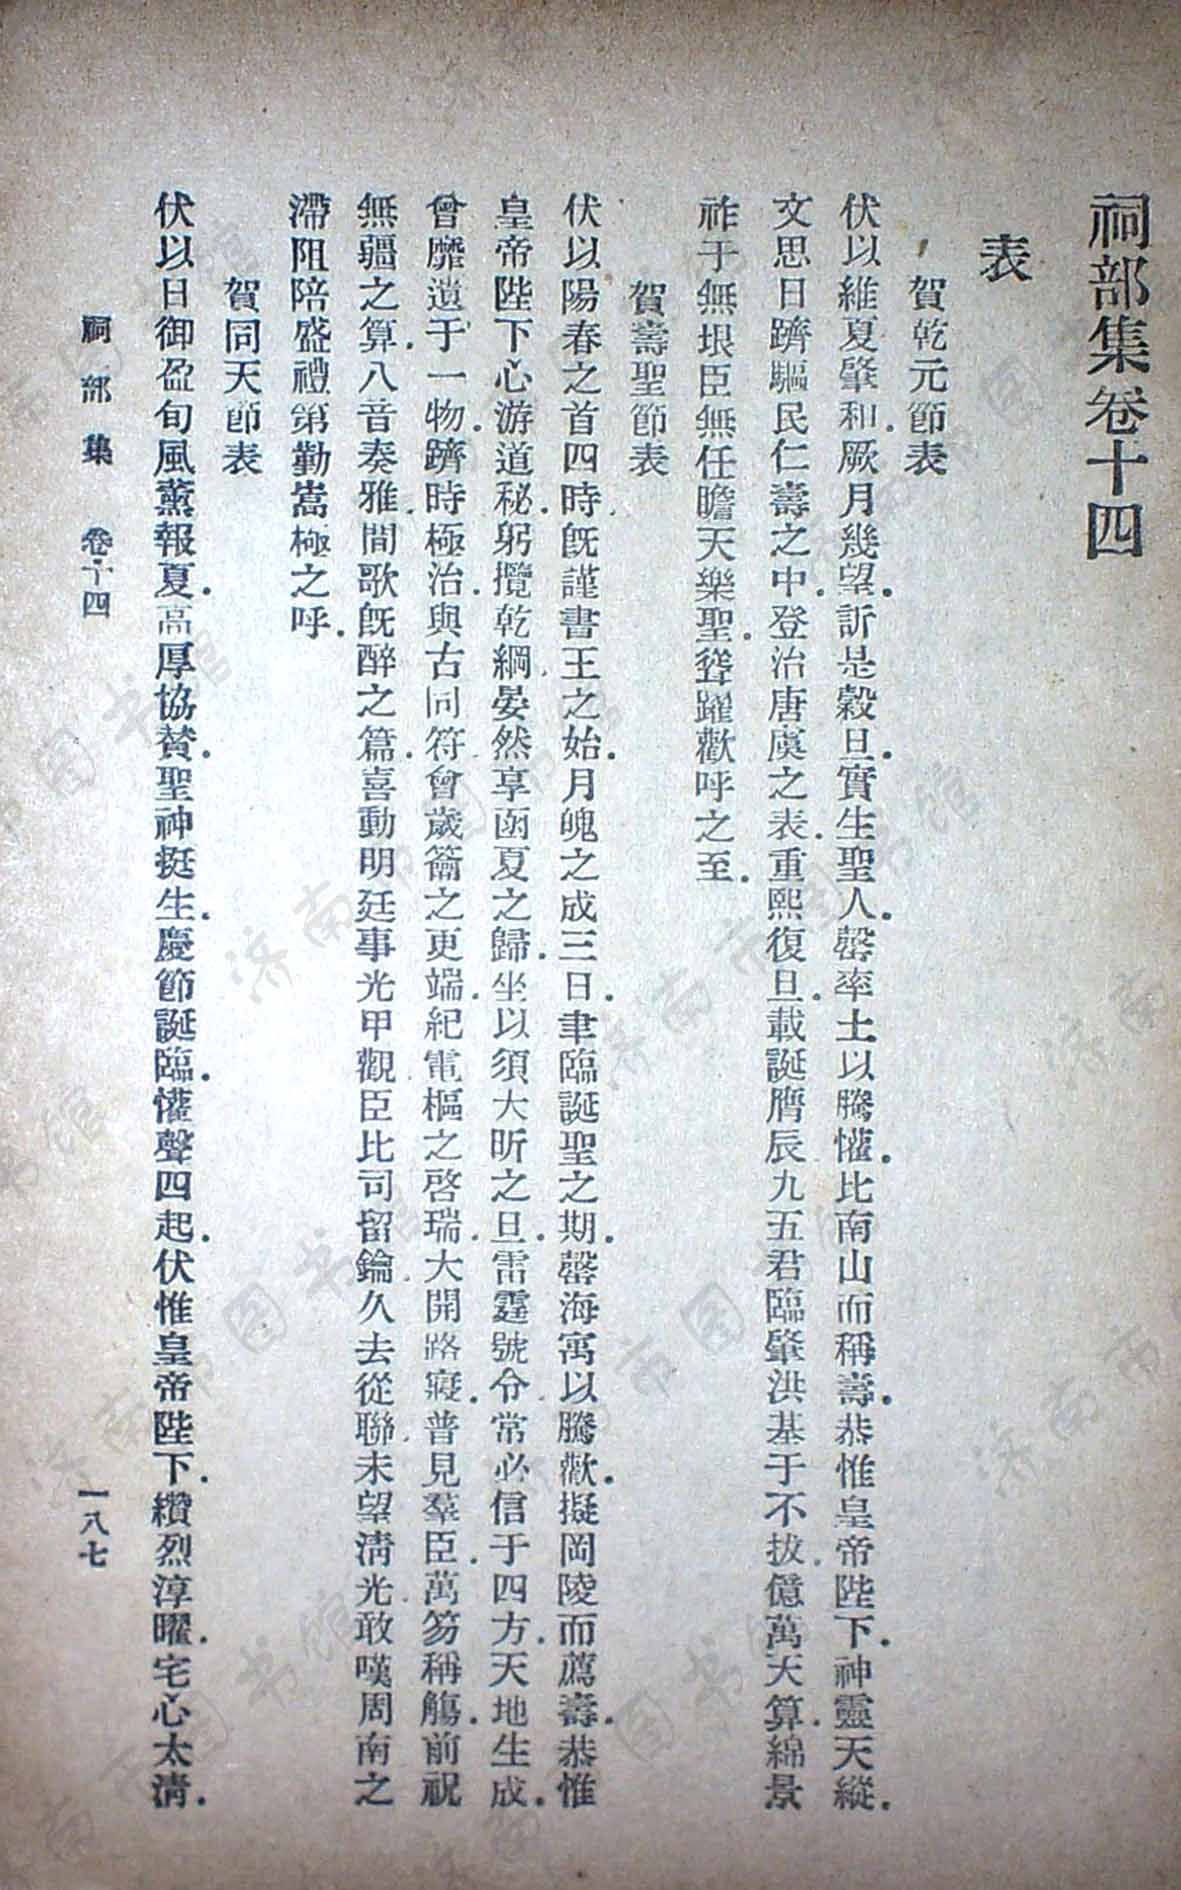 祠部集卷十四
表
賀乾元節表
伏以維夏肇和.厥月幾望.訢是穀旦.實生聖人.罄率土以騰懽.比南山而稱壽.恭惟皇帝陛下.神靈天縱.
文思日躋.驅民仁壽之中.登治唐虞之表.重熙復旦.載誕膺辰.九五君臨.肇洪基于不拔.億萬天算.綿景
祚于無垠.臣無任瞻天樂聖.聳躍歡呼之至.
賀壽聖節表
伏以陽春之首.四時旣謹書王之始.月魄之成.三日.聿臨誕聖之期.罄海寓以騰歡.擬岡陵而薦壽.恭惟
皇帝陛下.心游道秘.躬攬乾綱.晏然享函夏之歸.坐以須大昕之旦.雷霆號令.常必信于四方.天地生成.
曾靡遺于一物.躋時極治.與古同符.會歲籥之更端.紀電樞之啓瑞.大開路寢.普見羣臣.萬笏稱觴.前祝
無疆之算.八音奏雅.間歌旣醉之篇.喜動明廷.事光甲觀.臣比司留鑰.久去從聯.未望淸光.敢嘆周南之
滯.阻陪盛禮.第勤嵩極之呼.
賀同天節表
伏以日御盈旬.風薰報夏.高厚協贊.聖神挺生.慶節誕臨.懽聲四起.伏惟皇帝陛下.纘烈淳曜.宅心太淸.
祠部集 卷十四 一八七